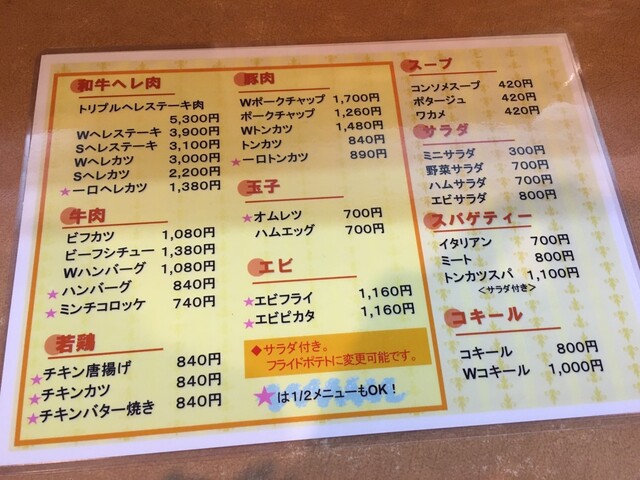 和牛ヘレ肉
トリプルヘレステーキ肉
5,300円
Wヘレステーキ 3,900円
Sヘレステーキ 3,100円
Wヘレカツ 3,000円
Sヘレカツ 2,200円
★一口ヘレカツ 1,380円
牛肉
ビフカツ 1,080円
ビーフシチュー 1,380円
Wハンバーグ 1,080円
★ハンバーグ 840円
★ミンチコロッケ 740円
若鶏
★チキン唐揚げ 840円
★チキンカツ 840円
★チキンバター焼き 840円
豚肉
Wポークチャップ 1,700円
ポークチャップ 1,260円
Wトンカツ 1,480円
トンカツ 840円
★一口トンカツ 890円
玉子
★オムレツ 700円
ハムエッグ 700円
エビ
★エビフライ 1,160円
★エビピカタ 1,160円
◆サラダ付き。
フライドポテトに変更可能です。
★は1/2メニューもOK！
スープ
コンソメスープ 420円
ポタージュ 420円
ワカメ 420円
サラダ
ミニサラダ 300円
野菜サラダ 700円
ハムサラダ 700円
エビサラダ 800円
スパゲティー
イタリアン 700円
ミート 800円
トンカツスパ 1,100円
＜サラダ付き＞
コキール
コキール 800円
Wコキール 1,000円